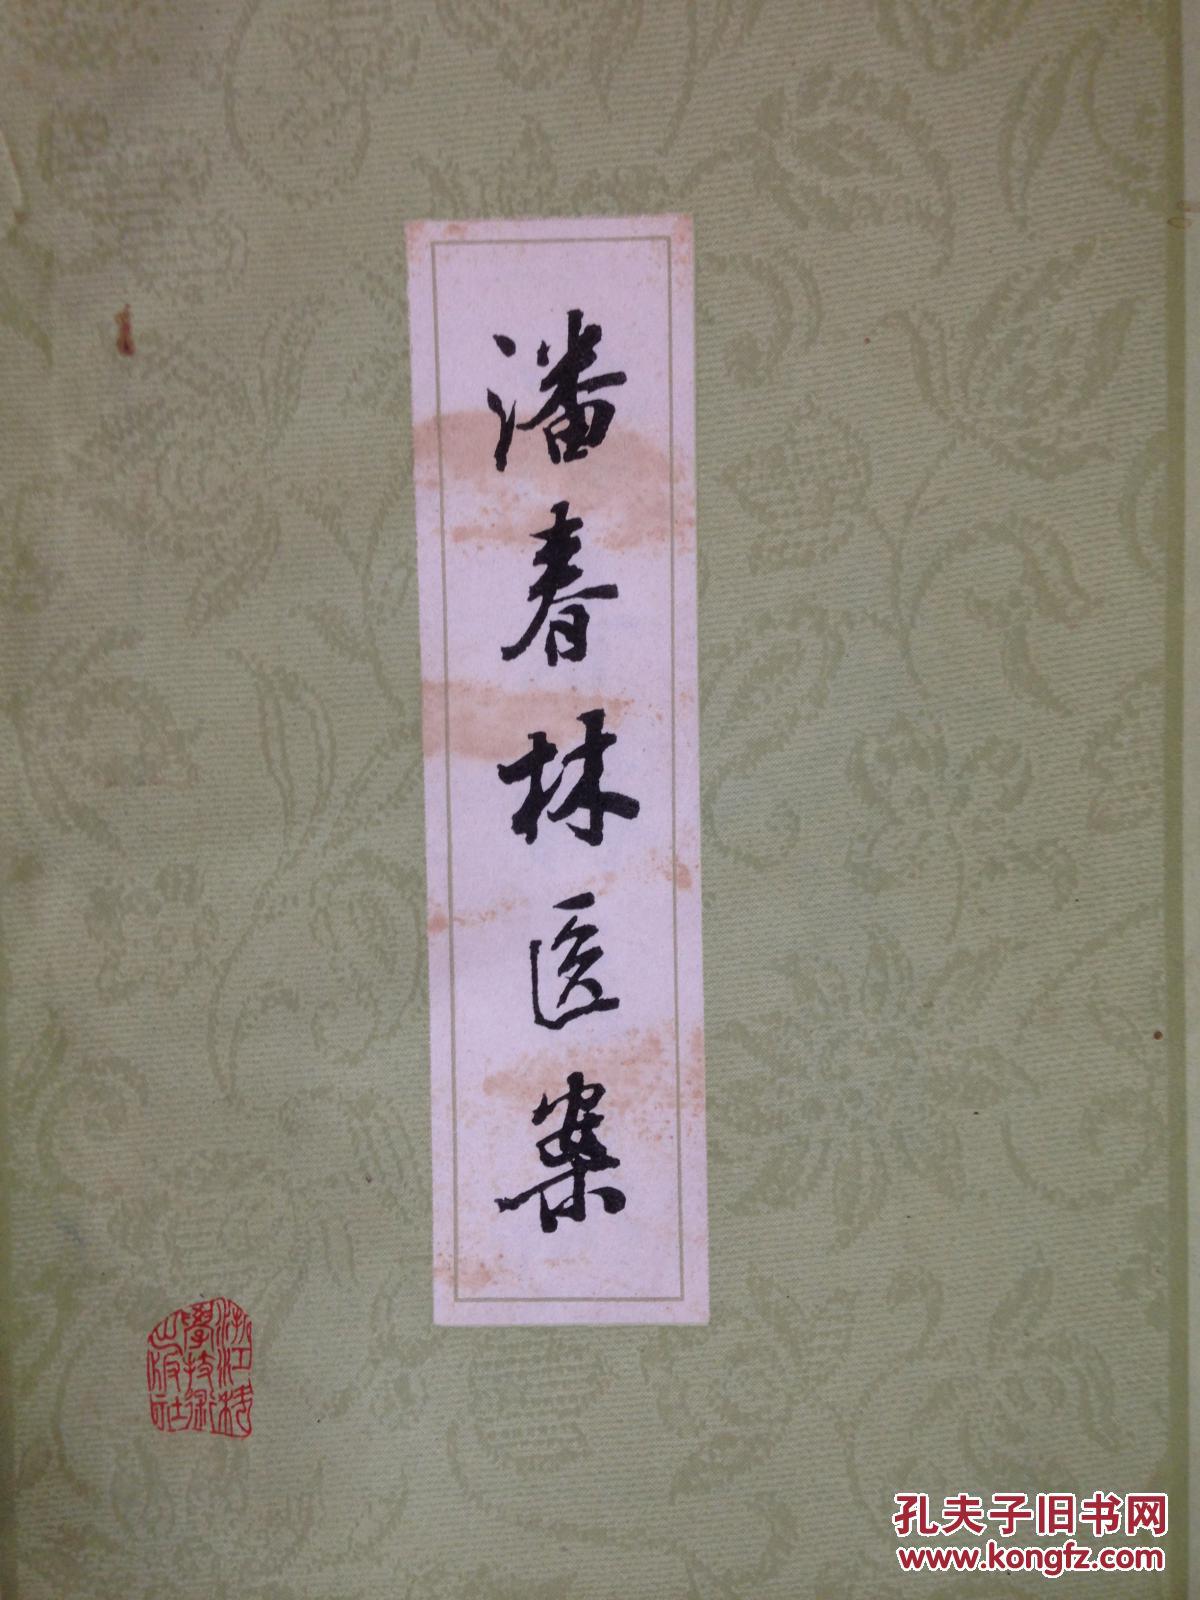 潘春林医案
浙江科
学技术
出版社
孔夫子旧书网
www.kongfz.com